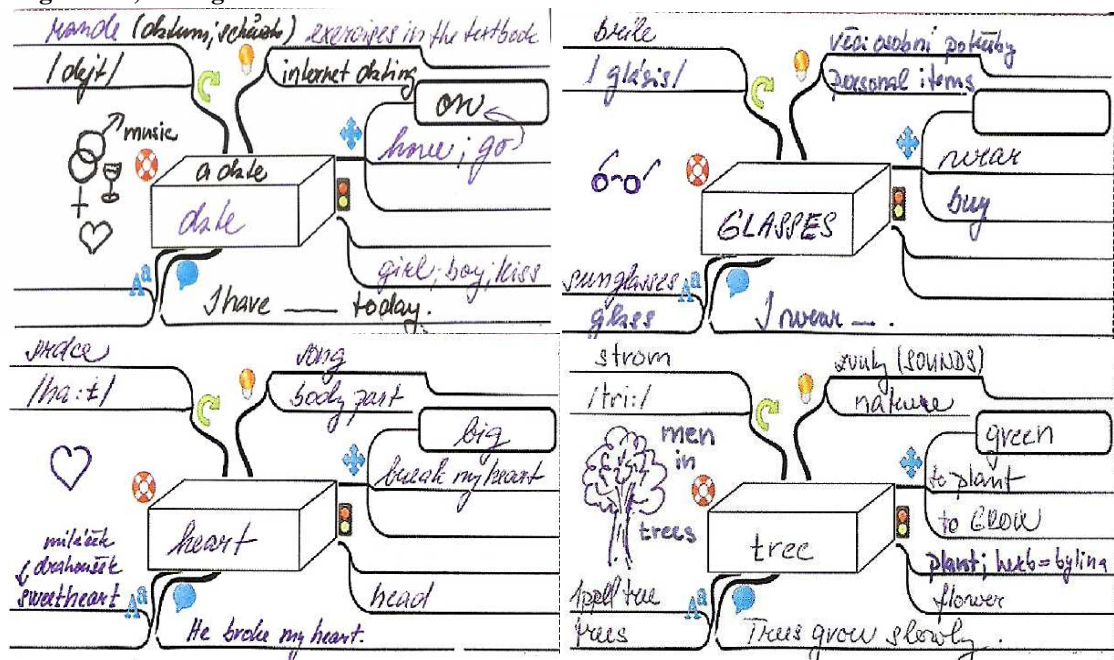 rande (datum; schůzka)
/dejt/
exercises in the textbook
internet dating
on
have; go
music
a date
date
girl; boy; kiss
I have ___ today.
brýle
/glásis/
věci osobní potřeby
personal items
wear
buy
GLASSES
sunglasses
glass
I wear __.
srdce
/ha:t/
song
body part
big
break my heart
heart
miláček
drahoušek
sweetheart
head
He broke my heart.
strom
/tri:/
zvuky (SOUNDS)
nature
green
to plant
to GROW
men
in
trees
tree
plant; herb=bylina
flower
appl tree
trees
Trees grow slowly.
Aa
Aa
Aa
Aa